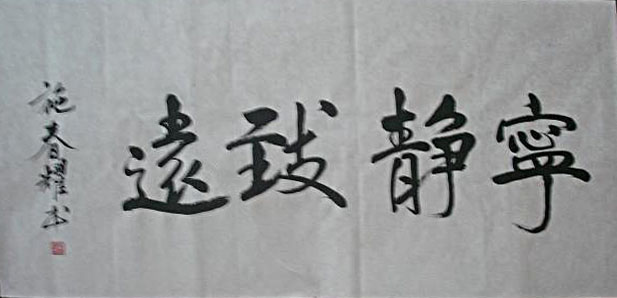 寧靜致遠
施春耀书